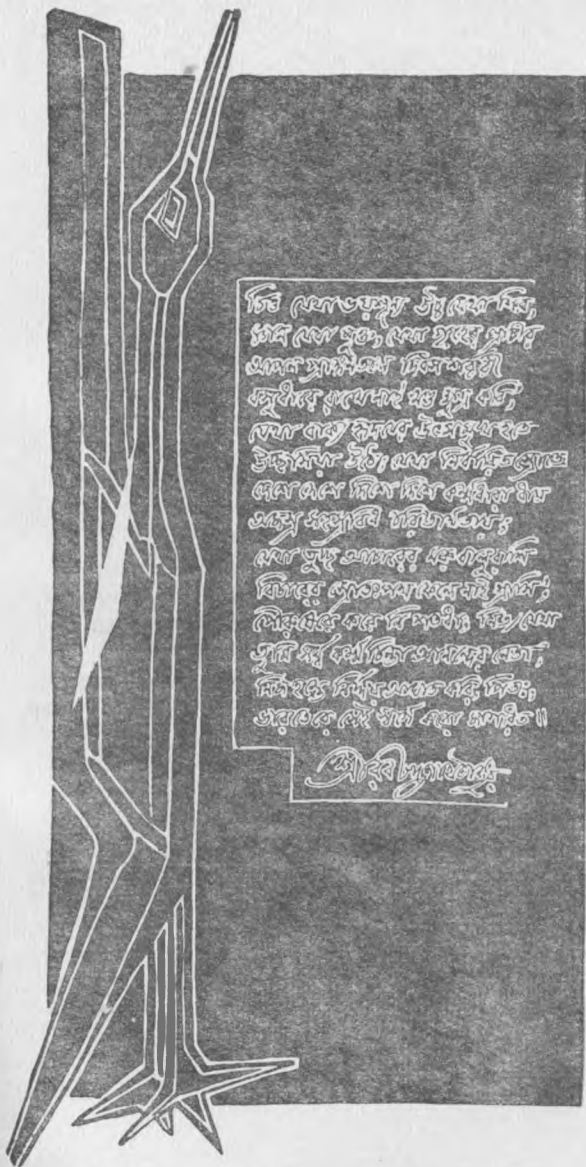 চিত্ত যেথা ভয়শূন্য উচ্চ যেথা শির,
জ্ঞান যেথা মুক্ত, যেথা গৃহের প্রাচীর
আপন প্রাঙ্গণতলে দিবস শর্বরী
বসুধারে রাখে নাই খণ্ড ক্ষুদ্র করি,
যেথা বাক্য হৃদয়ের উৎসমুখ হতে
উচ্ছ্বসিয়া উঠে, যেথা নির্বারিত স্রোতে
দেশে দেশে দিশে দিশে কর্মধারা ধায়
অজস্র সহস্রবিধ চরিতার্থতায়;
যেথা তুচ্ছ আচারের মরু বালুরাশি
বিচারের স্রোতঃপথ ফেলে নাই গ্রাসি;
পৌরুষেরে করে নি শতধা; নিত্য যেথা
তুমি সর্ব কর্ম চিন্তা আনন্দের নেতা;
নিজ হস্তে নির্দয় আঘাত করি পিতঃ,
ভারতেরে সেই স্বর্গে করো জাগরিত॥
শ্রীরবীন্দ্রনাথ ঠাকুর